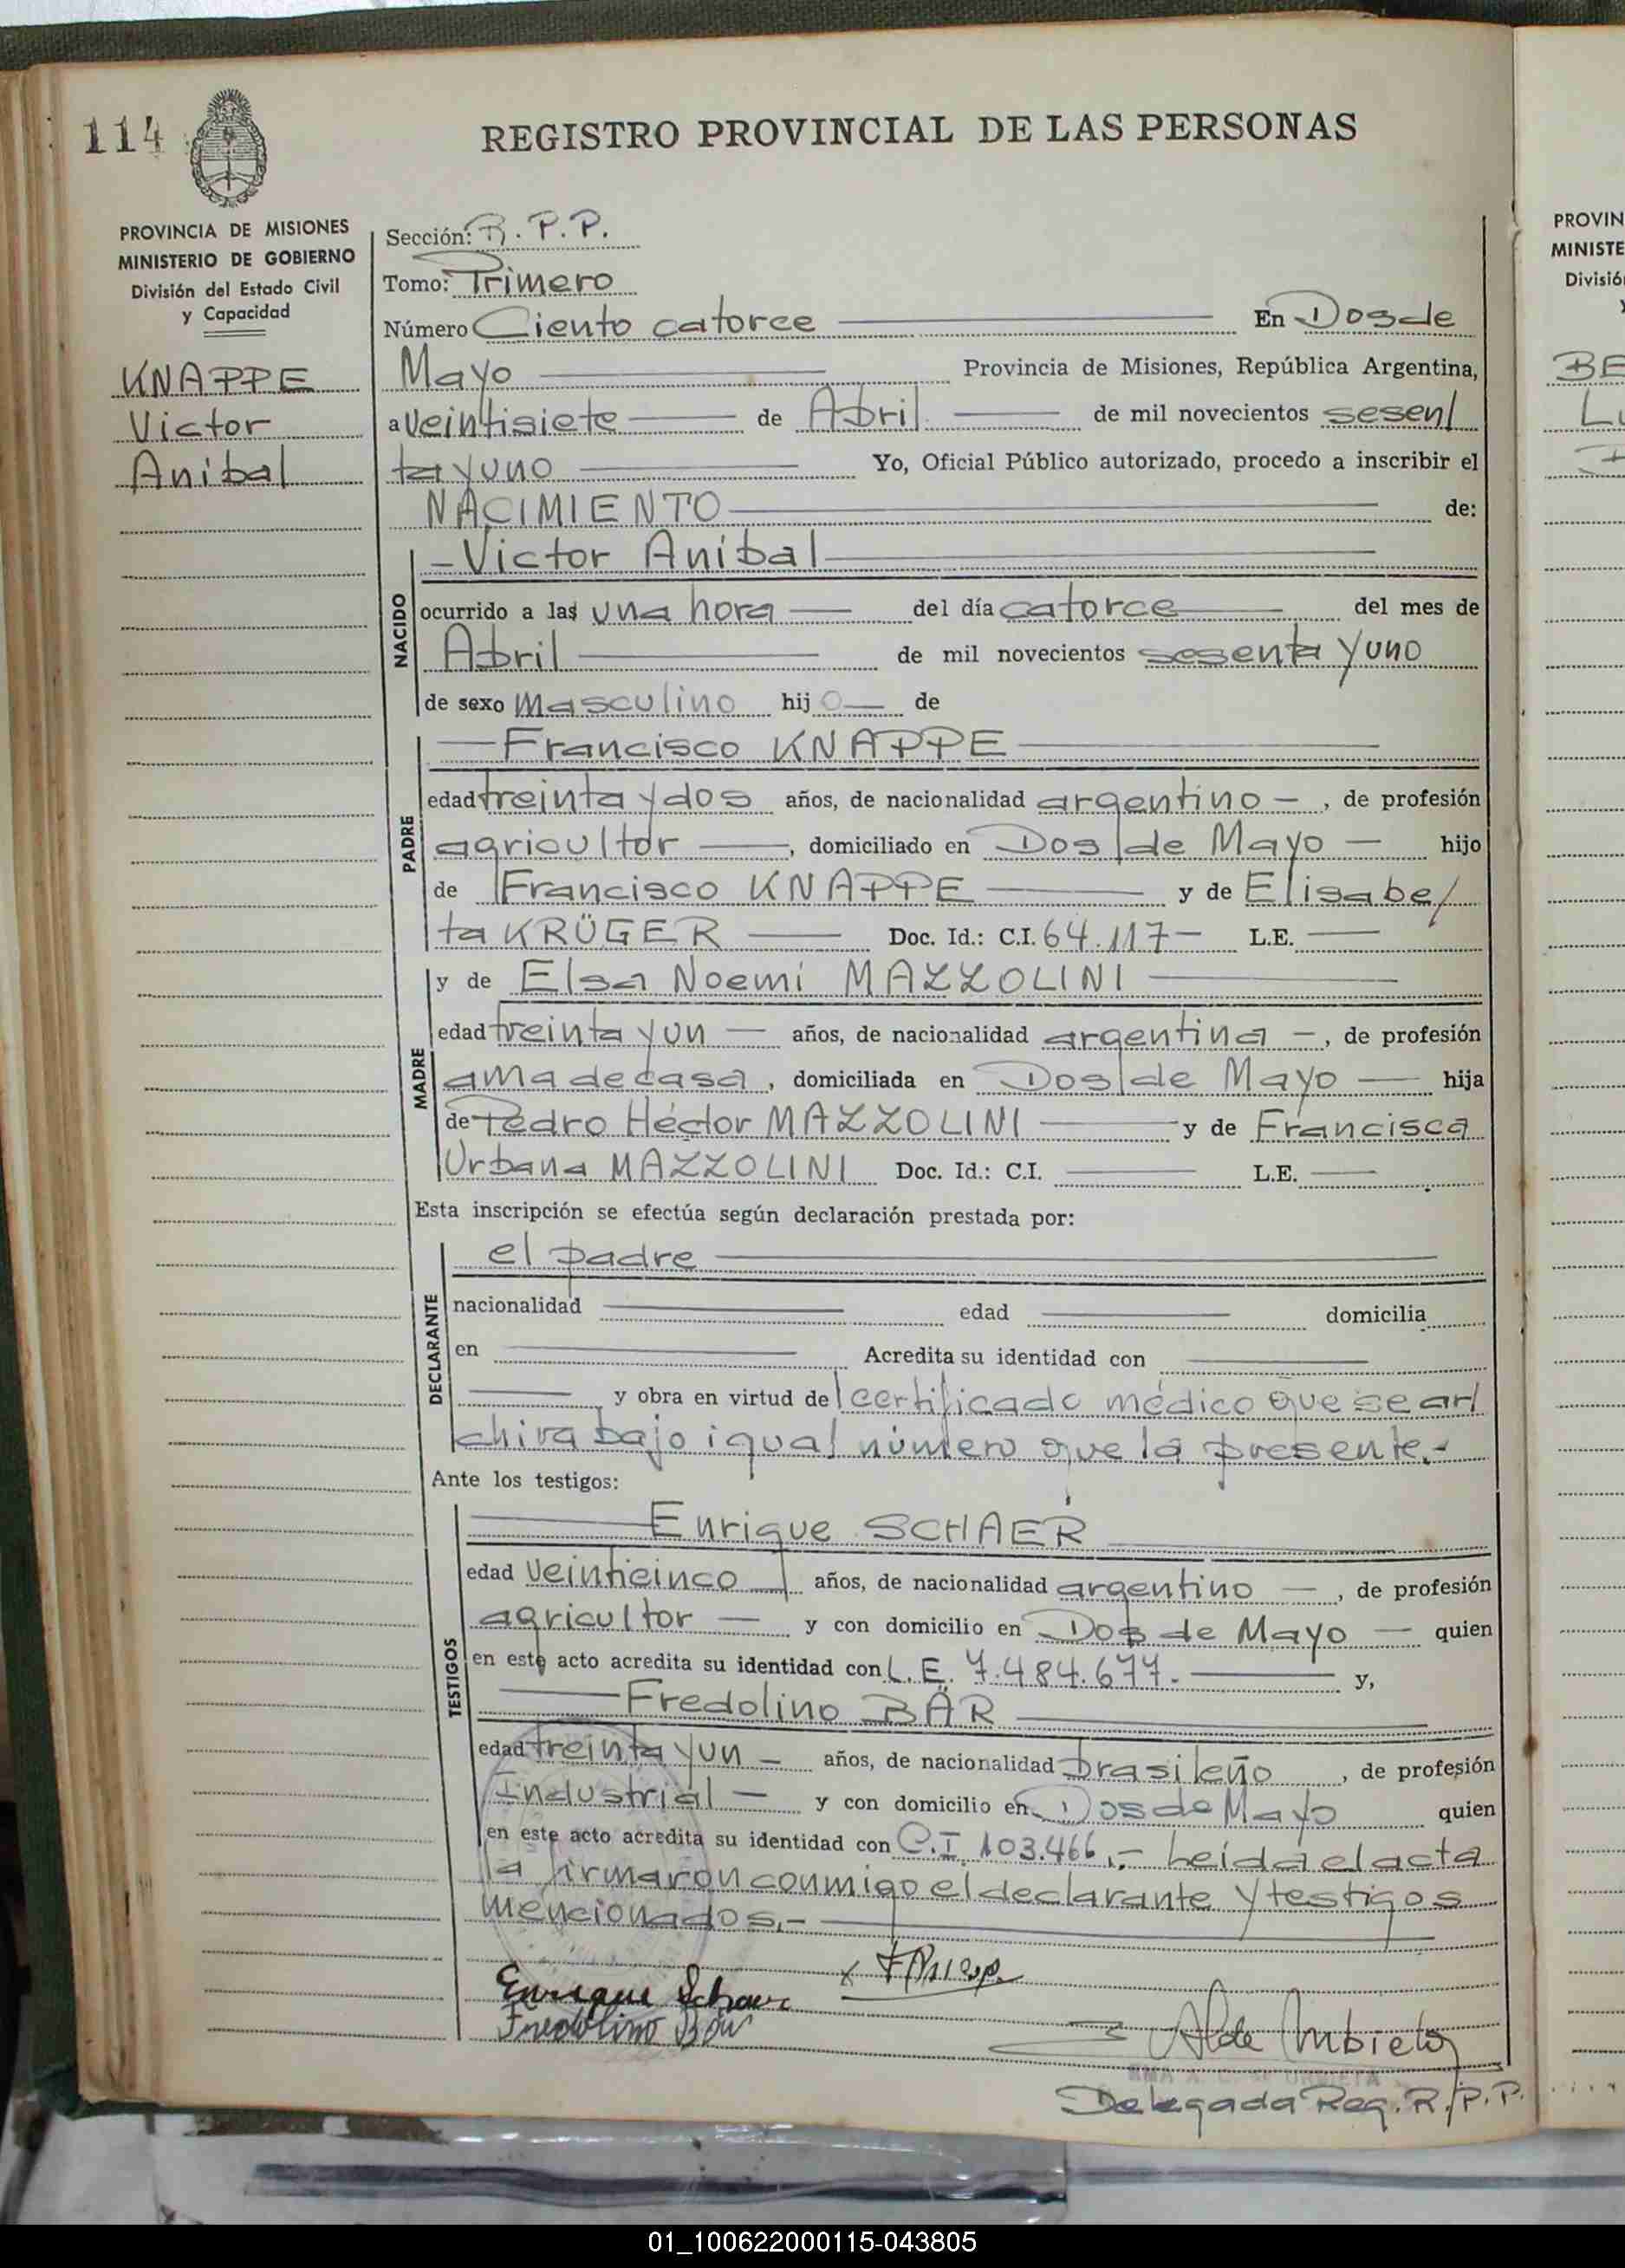 114
REGISTRO PROVINCIAL DE LAS PERSONAS
PROVINCIA DE MISIONES
MINISTERIO DE GOBIERNO
División del Estado Civil
y Capacidad
KNAPPE
Victor
Anibal
Sección: R.P.P.
Tomo: Primero
Número Ciento catorce En Dos de
Mayo Provincia de Misiones, República Argentina,
a veintisiete de Abril de mil novecientos sesen/
ta y uno Yo, Oficial Público autorizado, procedo a inscribir el
NACIMIENTO de:
NACIDO
- Victor Anibal
ocurrido a las una hora del día catorce del mes de
Abril de mil novecientos sesenta y uno
de sexo masculino hijo de
PADRE
Francisco KNAPPE
edad treinta y dos años, de nacionalidad argentino -, de profesión
agricultor, domiciliado en Dos de Mayo hijo
de Francisco KNAPPE y de Elisabe/
ta KRÜGER Doc. Id.: C.I. 64.117- L.E.
MADRE
y de Elsa Noemi MAZZOLINI
edad treinta y un años, de nacionalidad argentina -, de profesión
ama de casa, domiciliada en Dos de Mayo hija
de Pedro Héctor MAZZOLINI y de Francisca
Urbana MAZZOLINI Doc. Id.: C.I. L.E.
Esta inscripción se efectúa según declaración prestada por:
DECLARANTE
el padre
nacionalidad edad domicilia
en Acredita su identidad con
y obra en virtud del certificado médico que se ar/
chiva bajo igual número que la presente.-
Ante los testigos:
TESTIGOS
Enrique SCHAER
edad veinticinco años, de nacionalidad argentino -, de profesión
agricultor y con domicilio en Dos de Mayo quien
en este acto acredita su identidad con L.E. 7.484.677.- y,
Fredolino BÄR
edad treinta y un años, de nacionalidad brasileño, de profesión
Industrial y con domicilio en Dos de Mayo quien
en este acto acredita su identidad con C.I. 103.466.- Leida el acta
la firmaron conmigo el declarante y testigos
mencionados.-
Enrique Schaer
Fredolino Bär
Delegada Reg. R.P.P.
PROVIN
MINISTE
Divisió
BE
01_100622000115-043805